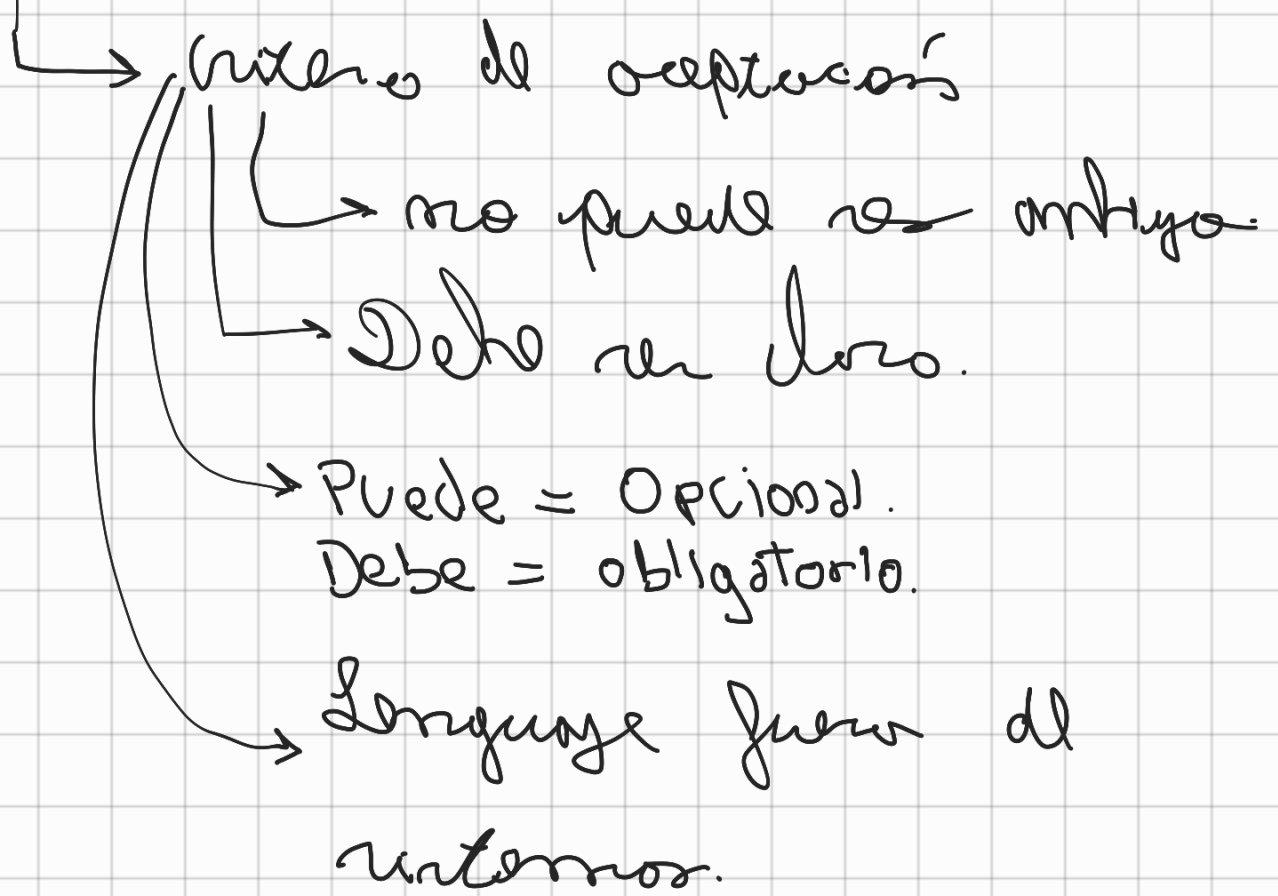 Criterio de aceptación
no puede ser ambiguo.
Debe ser claro.
Puede = Opcional.
Debe = obligatorio.
Lenguaje fuera del